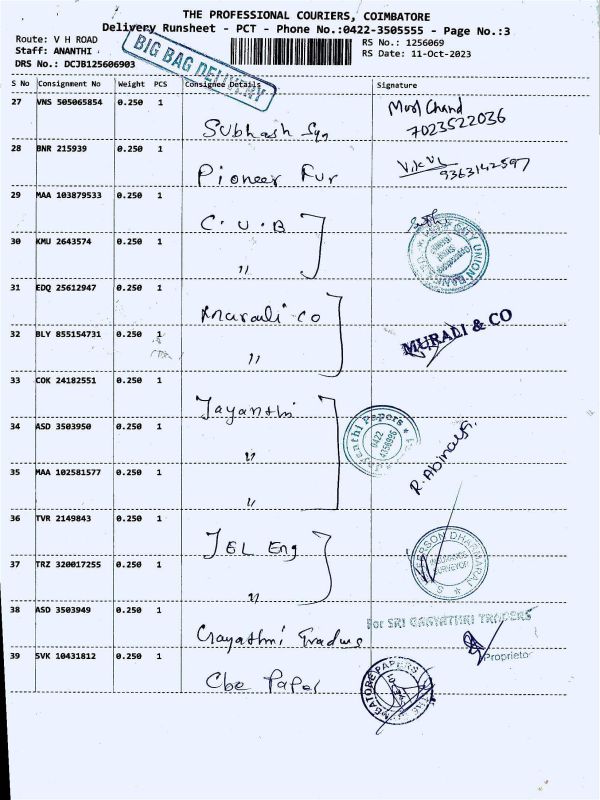 THE PROFESSIONAL COURIERS, COIMBATORE
Delivery Runsheet - PCT - Phone No.:0422-3505555 - Page No.:3
Route: V H ROAD
RS No.: 1256069
Staff: ANANTHI
RS Date: 11-Oct-2023
DRS No.: DCJB125606903
BIG BAG DELIVERY
S No Consignment No Weight PCS Consignee Details Signature
27 VNS 505065854 0.250 1 Subhash Chand
7023522036
28 BNR 215939 0.250 1 Pioneer Fur 9363142597
29 MAA 103879533 0.250 1 C.U.B
CITY UNION BANK
30 KMU 2643574 0.250 1 "
31 EDQ 25612947 0.250 1 Murali Co
MURALI & CO
32 BLY 855154731 0.250 1 "
33 COK 24182551 0.250 1 Jayanthi
34 ASD 3503950 0.250 1 "
Jayanthi Papers
0422
R. Abinaya
35 MAA 102581577 0.250 1 "
36 TVR 2149843 0.250 1 JEL Eng
37 TRZ 320017255 0.250 1 "
DHARMARAJ
INSURANCE
SURVEYOR
38 ASD 3503949 0.250 1 Gayathri Traders
For SRI GAGYATHRI TRADERS
Proprietor
39 SVK 10431812 0.250 1 Cbe Paper